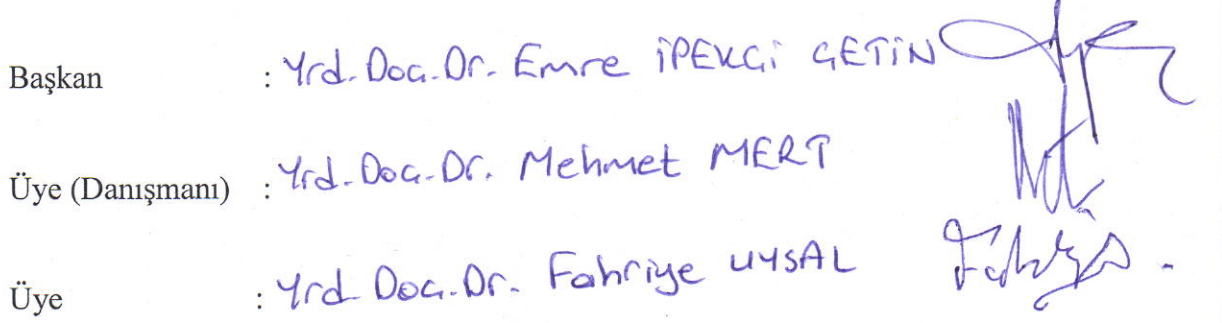 Başkan : Yrd. Doç. Dr. Emre İPEKÇİ ÇETİN
Üye (Danışmanı) : Yrd. Doç. Dr. Mehmet MERT
Üye : Yrd. Doç. Dr. Fahriye UYSAL